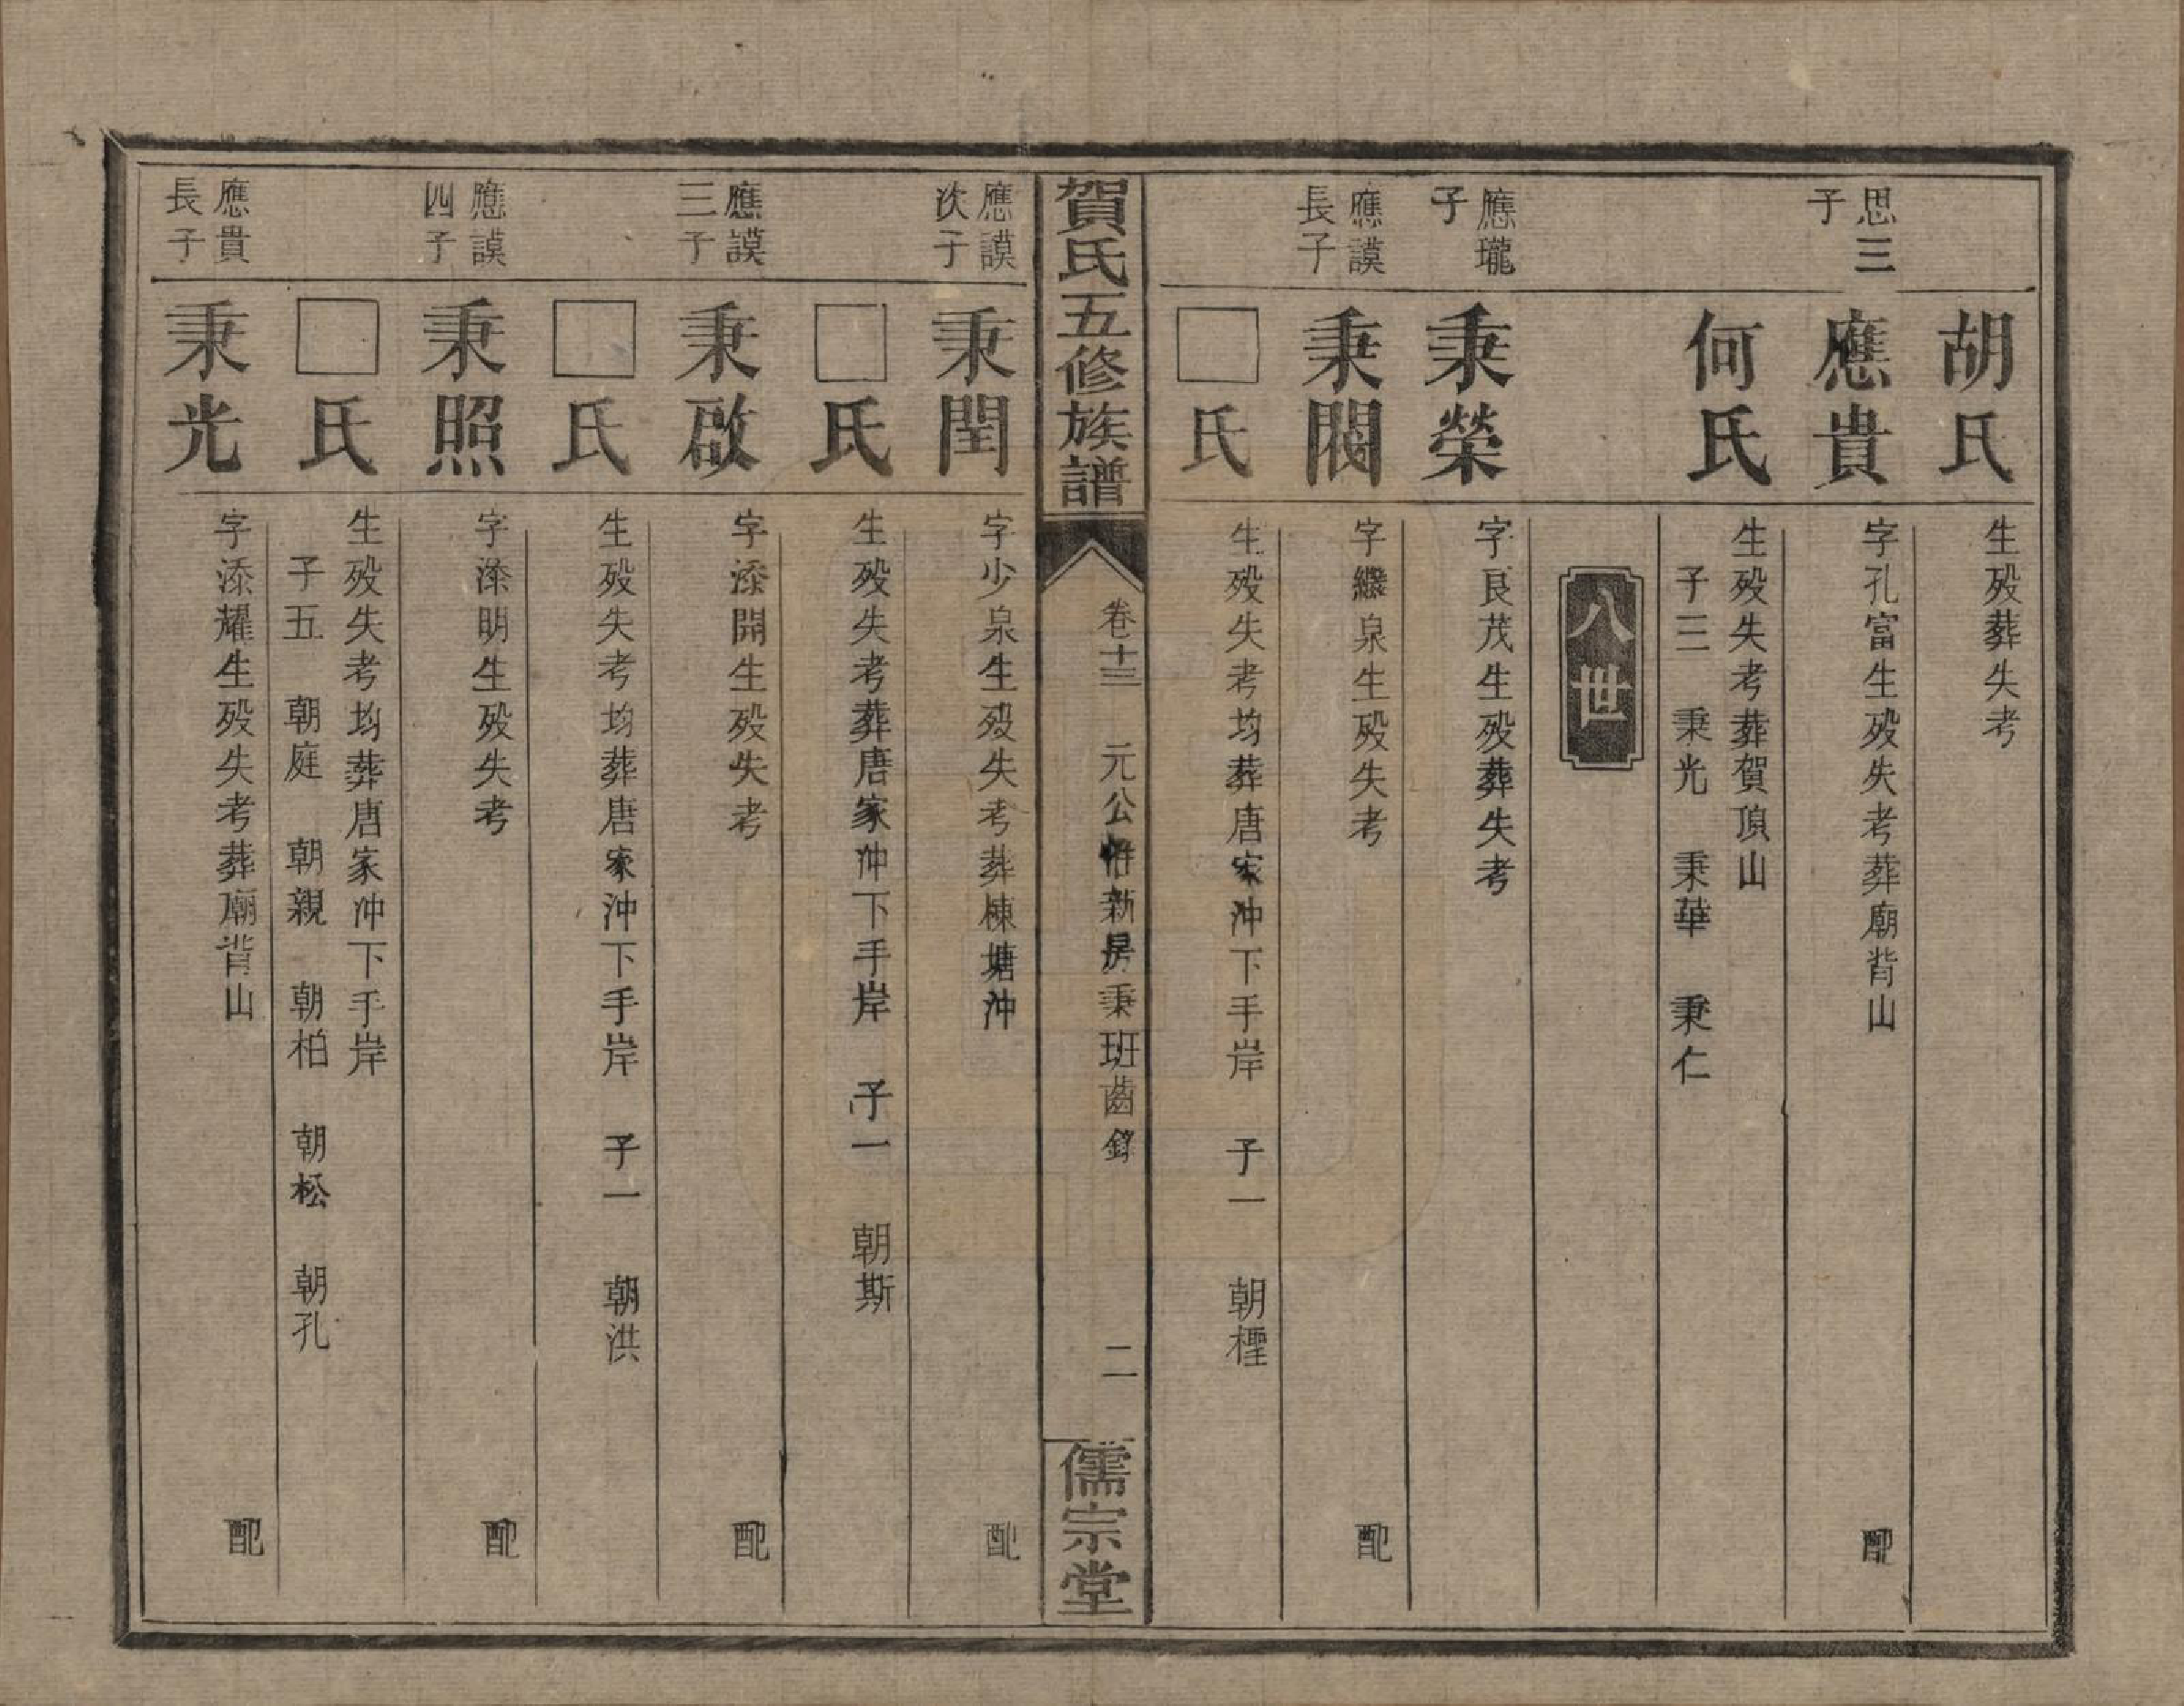 胡氏
生歿葬失考
思三
子
應貴
字孔富生歿失考葬廟背山 配
何氏
生歿失考葬賀頂山
子三 秉光 秉華 秉仁
八世
應瓏
子
秉榮
字艮茂生歿葬失考
應謨
長子
秉閥
字繼泉生歿失考 配
□氏
生歿失考均葬唐家冲下手岸 子一 朝檉
賀氏五修族譜
卷十三 元公 新房秉班齒錄 二
儒宗堂
應謨
次子
秉閏
字少泉生歿失考葬棟塘沖 配
□氏
生歿失考葬唐家冲下手岸 子一 朝斯
應謨
三子
秉啟
字添開生歿失考 配
□氏
生歿失考均葬唐家沖下手岸 子一 朝洪
應謨
四子
秉照
字添明生歿失考 配
□氏
生歿失考均葬唐家冲下手岸
子五 朝庭 朝親 朝柏 朝松 朝孔
應貴
長子
秉光
字添耀生歿失考葬廟背山 配